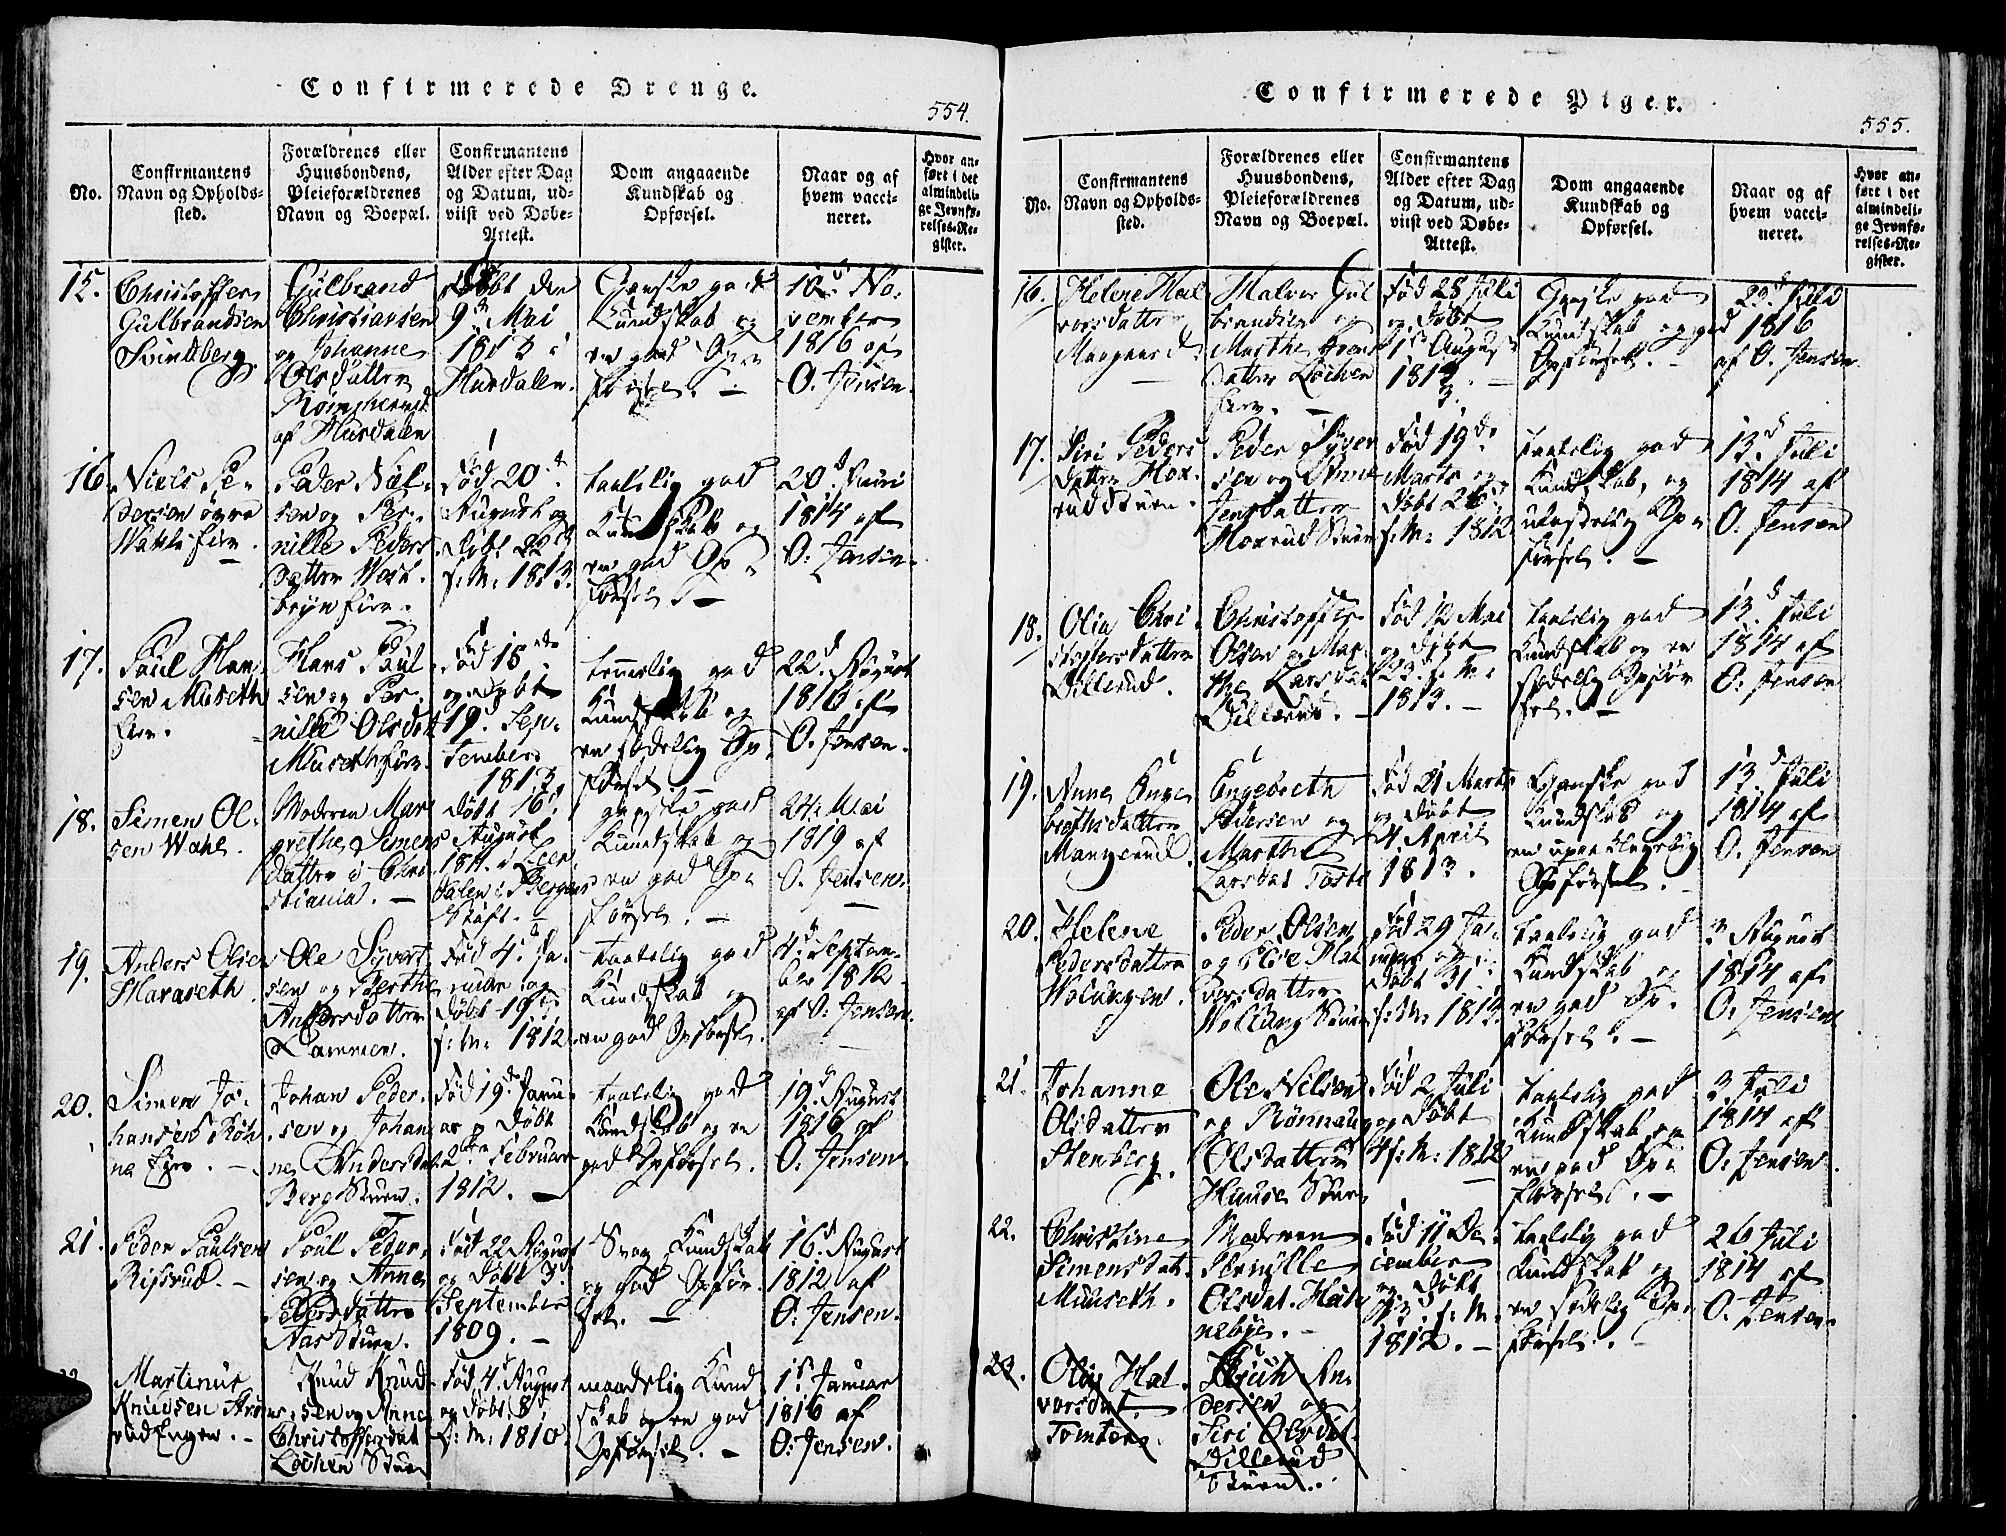 Confirmerede Drenge.
554.
No.
Confirmantens
Navn og Opholds-
sted.
Forældrenes eller
Huusbondens,
Pleieforældrenes
Navn og Boepæl.
Confirmantens
Alder efter Dag
og Datum, ud-
viist ved Døbe-
Attest.
Dom angaaende
Kundskab og
Opførsel.
Naar og af
hvem vacci-
neret.
Hvor an-
ført i det
almindeli-
ge Jevnfø-
relses-Re-
gister.
15.
Christoffer
Gulbrandsen
Svindberg
Gulbrand
Christiansen
og Johanne
Olsdatter
af Hurdalen
Døbt den
9de Mai
1813 i
Hurdalen.
Ganske god
Kundskab og
en god Op-
førsel. —
No-
vember
1816 af
O. Jensen.
16
Niels Pe-
dersen
Peder Niel-
sen og Per-
nille Peders-
datter
Født 20de
August og
Døbt 22de
s: M: 1813.
taalelig god
Kundskab og
en god Op-
førsel. —
20d Juni
1814 af
O: Jensen.
17.
Paul Han-
sen Museth
Eier.
Hans Paul-
sen og Per-
nille Olsdat
Museth
Død 15de
og Døbt
19d Sep-
tember
1813.
Kundskab og
en sædelig Op-
førsel. —
22d August
1816 af
O. Jensen.
18.
Simen Ol-
sen Wahl.
Moderen Mar-
grethe Simens-
datter i Chri-
stiania. —
Døbt 16d
August
1811 i
ganske god
Kundskab og
en god Op-
førsel. —
24. Mai
1819 af
O. Jensen.
19.
Anders Olsen
Haraseth.
Ole Syvert-
sen og Berthe
Andersdatter
Lammen.
Fød 4d Ja-
nuar og
Døbt 19de
s: M: 1812
taalelig god
Kundskab og
en god Opførsel.
4d Septem-
ber 1812
af O. Jensen.
20.
Simen Jo-
hansen
Johan Peder-
sen og Johan-
ne Andersdat
Berg Stuen.
Fød 19de Janu-
ar og Døbt
2den Februar
1812. —
taalelig god
Kundskab og en
god Opførsel.
19d August
1816 af
O. Jensen.
21.
Peder Paulsen
Risrud. —
Poul Peder-
sen og Anne
Pedersdatter
Aas Stuen.
Fød 22 August
og Døbt 3d
September
1809. —
Svag Kundskab
og god Opfør-
sel. —
16d August
1812 af
O: Jensen.
Martinus
Knudsen
rud Engen. —
Knud Knud-
sen og Anne
Christoffersdat
Løchen Stuen
Fød 4 August
og Døbt 8
s: M: 1810.
maadelig Kund-
skab og en god
Opførsel. —
1d Januar
1816 af
O: Jensen.
Confirmerede Piger.
555.
No.
Confirmantens
Navn og Opholds-
sted.
Forældrenes eller
Huusbondens,
Pleieforældrenes
Navn og Boepæl.
Confirmantens
Alder efter Dag
og Datum, ud-
viist ved Døbe-
Attest.
Dom angaaende
Kundskab og
Opførsel.
Naar og af
hvem vacci-
neret.
Hvor an-
ført i det
almindeli-
ge Jevnfø-
relses-Re-
gister.
16.
Helene Hal-
vorsdatter
Halvor Gul-
brandsen og
Marthe Iver-
datter Løchen
Eier. —
Fød 28 Juli
og Døbt
1d August
1813. —
Ganske god
Kundskab og god
Opførsel. —
23d Juli
1816
af O. Jensen.
17.
Siri Peders-
datter Hox-
rud Stuen
Peder Syver-
sen og Anne
Jensdatter
Hoxrud Stuen
Fød 19de
Marts og
Døbt 26
s: M: 1812
taalelig god
Kundskab, og
ulastelig Op-
førsel. —
13d Juli
1814 af
O. Jensen
18.
Olia Chri-
stoffersdatter
Dillerud.
Christoffer
Olsen og Mar-
the Larsdat
Dillerud. —
Fød 12 Mai
og Døbt
23d s: M:
1813. —
taalelig god
Kundskab og en
sædelig Opfør-
sel. —
13d Juli
1814 af
O: Jensen
19.
Anne Enge-
brethsdatter
Mangerud.
Engebreth
Pedersen og
Marthe
Larsdat
Fød 21 Marts
og Døbt
4 April
1813.
Ganske god
Kundskab og
en upaaklagelig
Opførsel. —
13d Juli
1814 af
O. Jensen
20.
Helene
Pedersdatter
Peder Olsen
og Else Hal-
vorsdatter
Fød 29 Ja-
nuar og
Døbt 31
s: M: 1813.
taalelig god
Kundskab og
en god Op-
førsel. —
3 August
1814 af
O: Jensen
21.
Johanne
Olsdatter
Stenberg.
Ole Nilsen
og Rønnaug
Olsdatter
Fød 2 Juli
og Døbt
4 s: M: 1812
taalelig god
Kundskab og
en god Op-
førsel. —
3 Juli
1814 af
O: Jensen.
22.
Christine
Simensdat.
Museth.
Moderen
Pernille
Olsdat.
Fød 11 De-
cember
og Døbt
13 s: M:
1812. —
taalelig god
Kundskab og
en sædelig Op-
førsel. —
26 Juli
1814 af
O. Jensen.
23.
Olia Hal-
vorsdat.
An-
dersen og
Siri Olsdat.
Dillerud
Stuen.